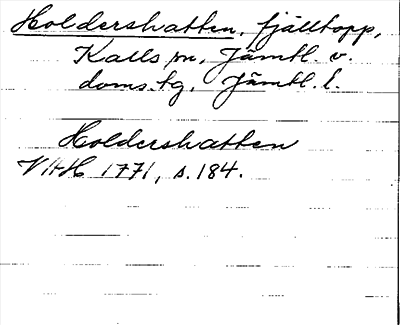 Holdershatten, fjälltopp,
Kalls sn, Jämtl. v.
doms. tg, Jämtl. l.
Holdershatten
VHH 1771, s. 184.